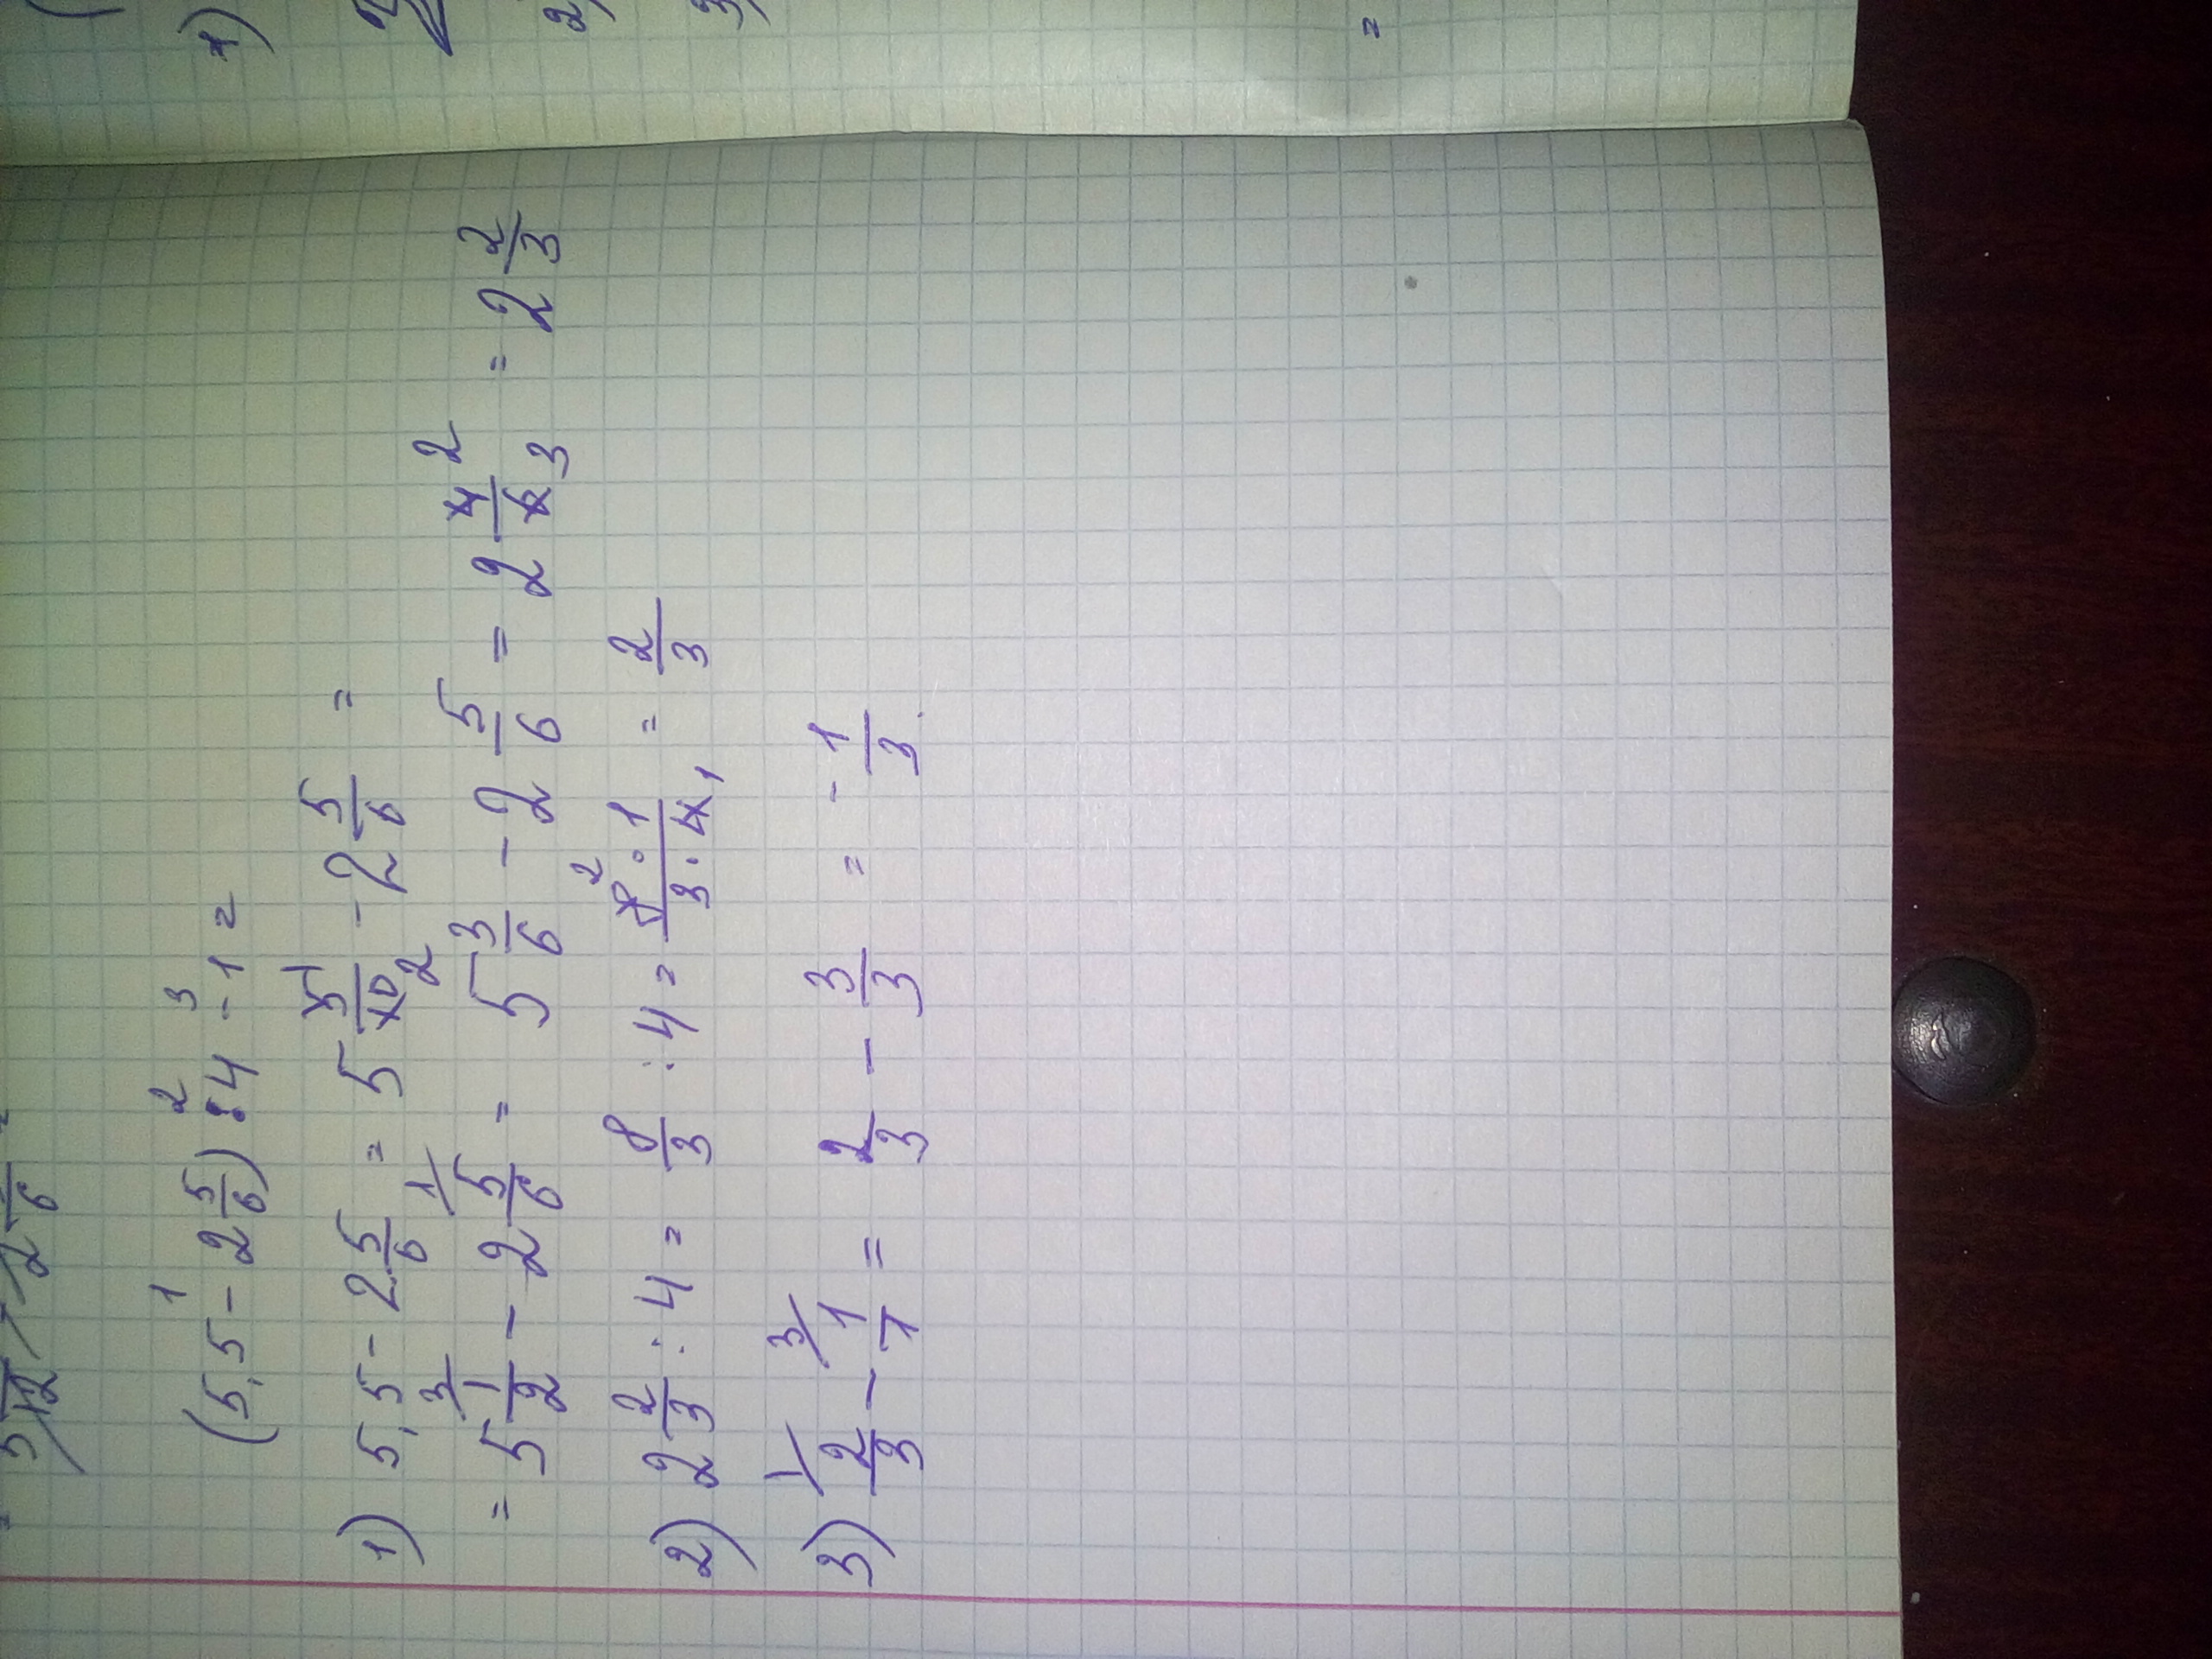 (5,5 - 2 5/6) : 4 - 1 =
1) 5,5 - 2 5/6 = 5 5/10 - 2 5/6 =
= 5 1/2 - 2 5/6 = 5 3/6 - 2 5/6 = 2 4/6 = 2 2/3
2) 2 2/3 : 4 = 8/3 : 4 = 8·1/3·4 = 2/3
3) 2/3 - 1/1 = 2/3 - 3/3 = - 1/3